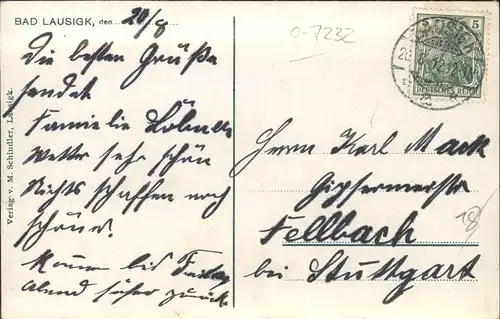 BAD LAUSIGK, den 20/8
Die besten Grüße
sendet
Familie
Wetter sehr schön
Nichts schaffen noch
schöner.
Kommen bis Freitag
Abend zurück
Verlag v. M. Schindler, Lausigk.
0-7232
5 5
DEUTSCHES REICH
Herrn Karl Mack
Gipsermeister
Fellbach
bei Stuttgart
18